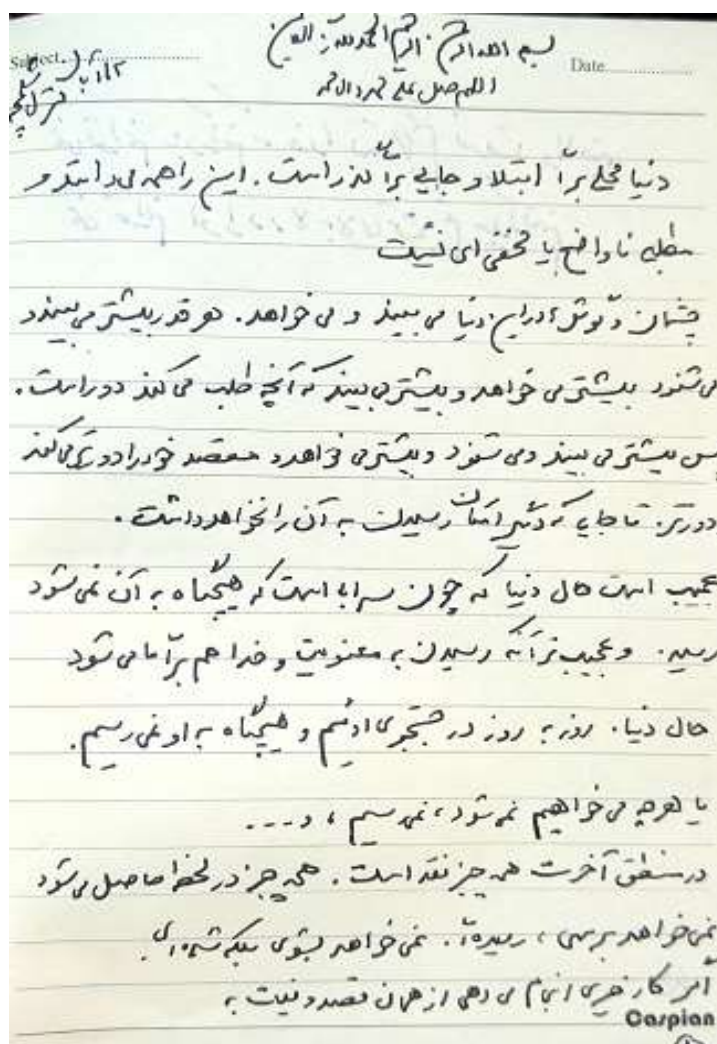 بسم الله الرحمن الرحیم الحمدلله رب العالمین
Subject Date
اللهم صل علی محمد و ال محمد
دنیا محلی برا ابتلا و جایی برا گذر است. این را همه می دانند و
مطلب ناواضح یا مخفی ای نیست
چشمان و گوش ما در این دنیا می بیند و می خواهد. هر قدر بیشتر می بیند و
می شنود بیشتر می خواهد و بیشتر می بیند که آنچه طلب می کند دور است.
پس بیشتر می بیند و می شنود و بیشتر می خواهد و مقصد خود را دورتر می کند
دورتر. تا جایی که دیگر امکان رسیدن به آن را نخواهد داشت.
عجیب است حال دنیا که چون سرابی است که هیچگاه به آن نمی شود
رسید. و عجیب تر آنکه رسیدن به معنویت و خدا هم برا ما می شود
حال دنیا. روز به روز در جستجوی اوئیم و هیچگاه به او نمی رسیم.
یا هر چه می خواهیم نمی شود، نمی رسیم، و....
در منطق آخرت همه چیز نقد است. همه چیز در لحظه حاصل می شود
نمی خواهد برسی، رسیده ای. نمی خواهد بشوی بلکه شده ای.
اگر کار خیری انجام می دهی از همان قصد و نیت به
Caspian